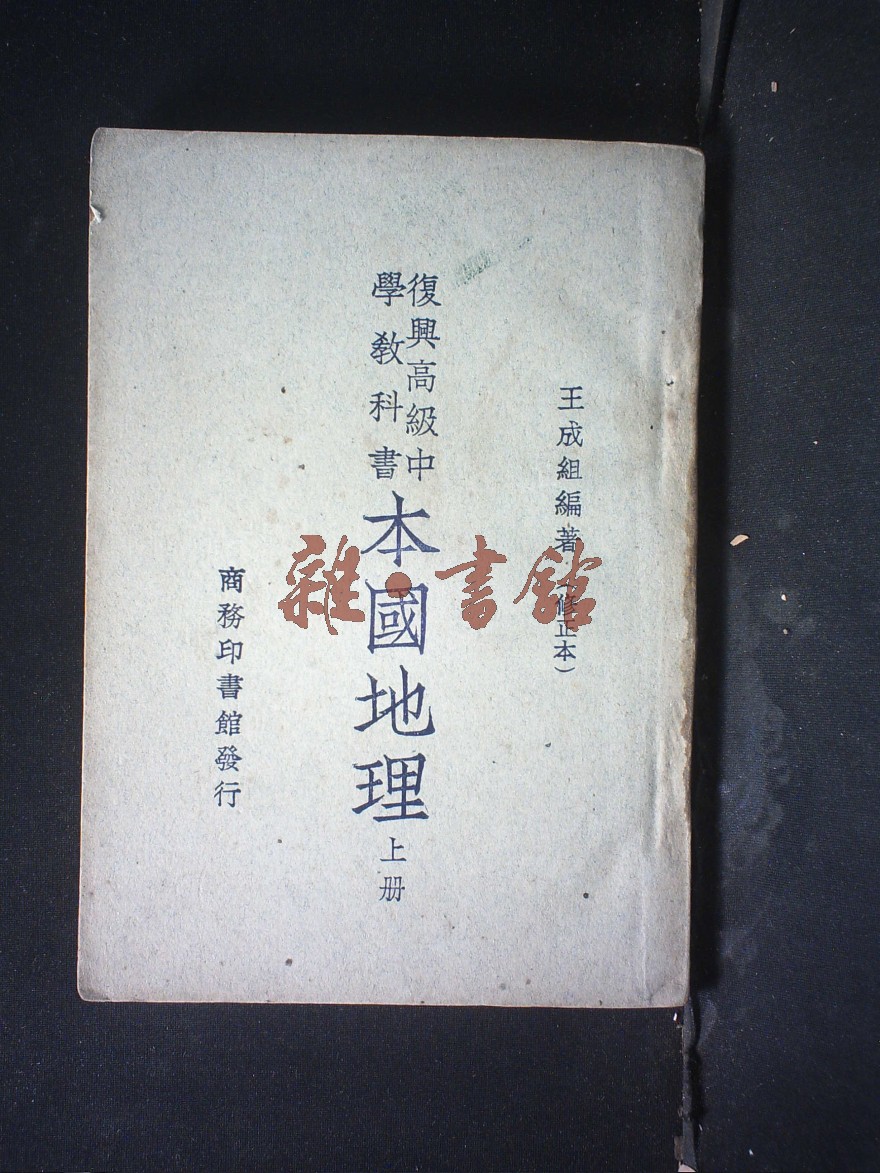 王成組編著（修正本）
復興高級中
學教科書
本國地理
上册
商務印書館發行
雜·書館